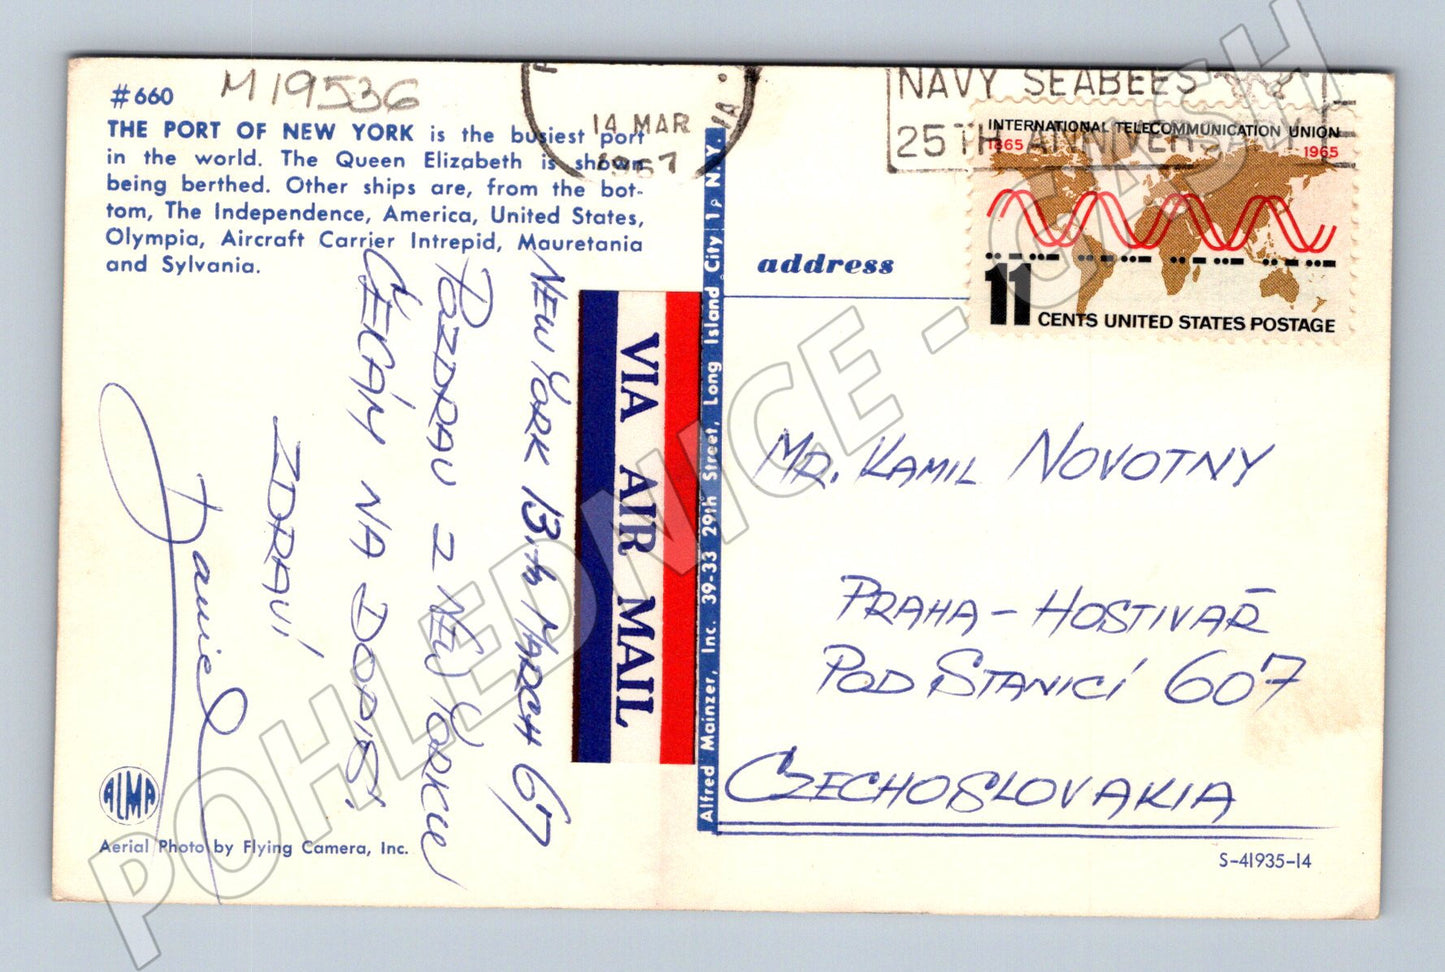 #660
M19536
THE PORT OF NEW YORK is the busiest port
in the world. The Queen Elizabeth is shown
being berthed. Other ships are, from the bot-
tom, The Independence, America, United States,
Olympia, Aircraft Carrier Intrepid, Mauretania
and Sylvania.
14 MAR
1967
NAVY SEABEES
25TH ANNIVERSARY
INTERNATIONAL TELECOMMUNICATION UNION
1865
1965
11
CENTS UNITED STATES POSTAGE
address
NEW YORK 13.th MARCH 67
POZDRAV Z NEW YORKU
ČECHY NA DODISY.
ZDRAVÍ
Daniel
VIA AIR MAIL
Alfred Mainzer, Inc. 39-33 29th Street, Long Island City 1, N.Y.
MR. KAMIL NOVOTNY
PRAHA - HOSTIVAŘ
POD STANICÍ 607
CZECHOSLOVAKIA
ALMA
Aerial Photo by Flying Camera, Inc.
S-41935-14
POHLEDNICE - CASH